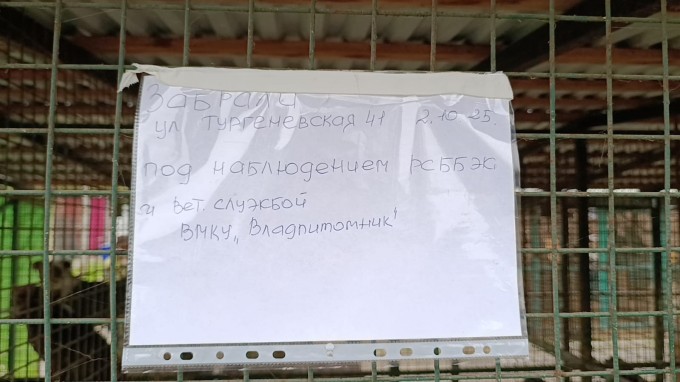 Забрали
ул Тургеневская 41 2.10-25.
под наблюдением РСББЖ
и вет. службой
ВМКУ „Владпитомник"